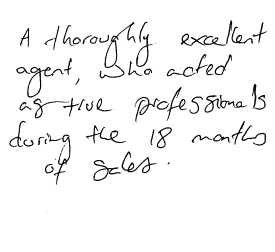 A thoroughly excellent
agent, who acted
as true professionals
during the 18 months
of sales.